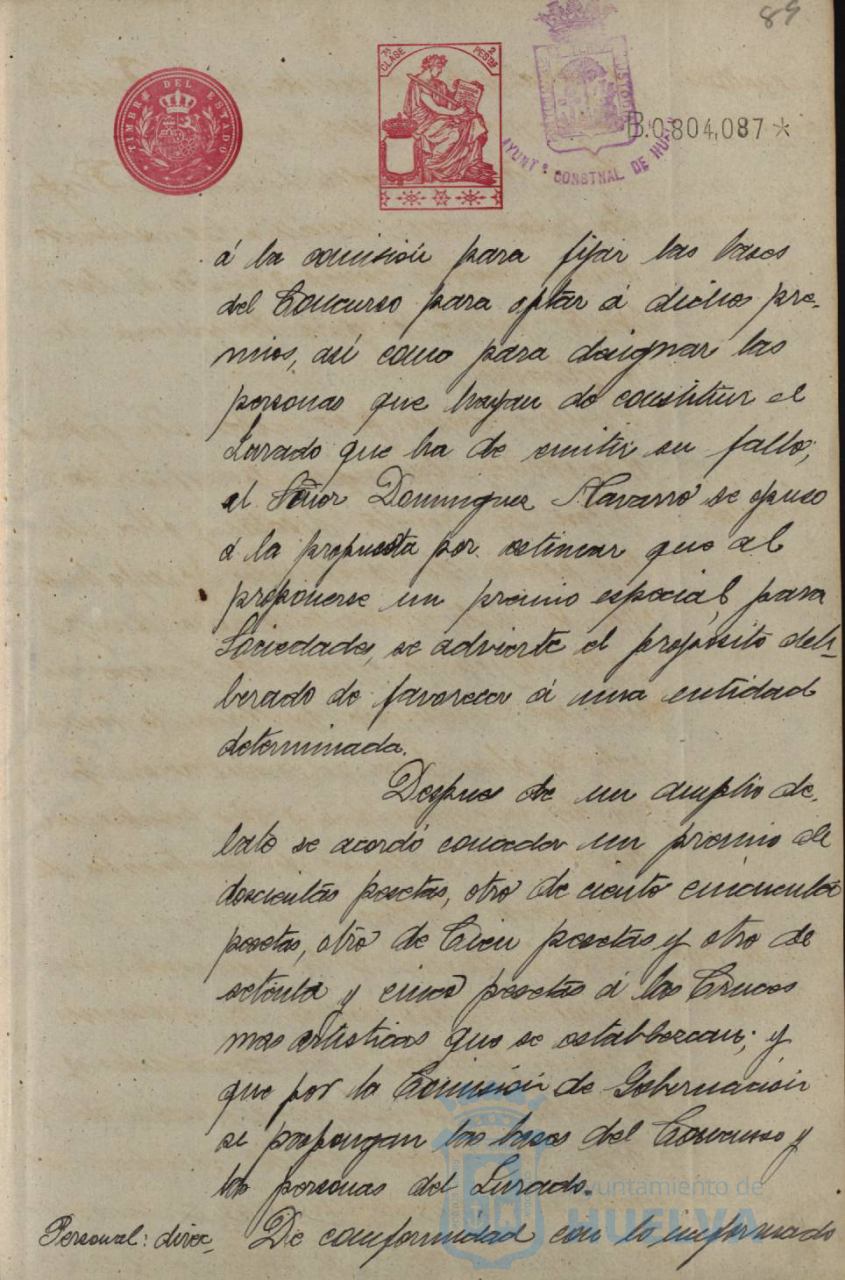 89
TIMBRE DEL ESTADO
7ª CLASE
2 PESTAS
B.0.804,087 *
AYUNTº CONSTNAL DE HUELVA
á la comision para fijar las bases
del Concurso para optar á dichos pre-
mios, así como para designar las
personas que hayan de constituir el
Jurado que ha de emitir su fallo;
el Señor Dominguez Navarro se opuso
á la propuesta por estimar que al
proponerse un premio especial para
Sociedades, se advierte el propósito deli-
berado de favorecer á una entidad
determinada.
Despues de un amplio de-
bate se acordó conceder un premio de
doscientas pesetas, otro de ciento cincuenta
pesetas, otro de Cien pesetas y otro de
setenta y cinco pesetas á las Cruces
mas artisticas que se establezcan; y
que por la Comisión de Gobernación
se propongan las bases del Concurso y
las personas del Jurado.
Personal: direc- De conformidad con lo informado
Ayuntamiento de
HUELVA